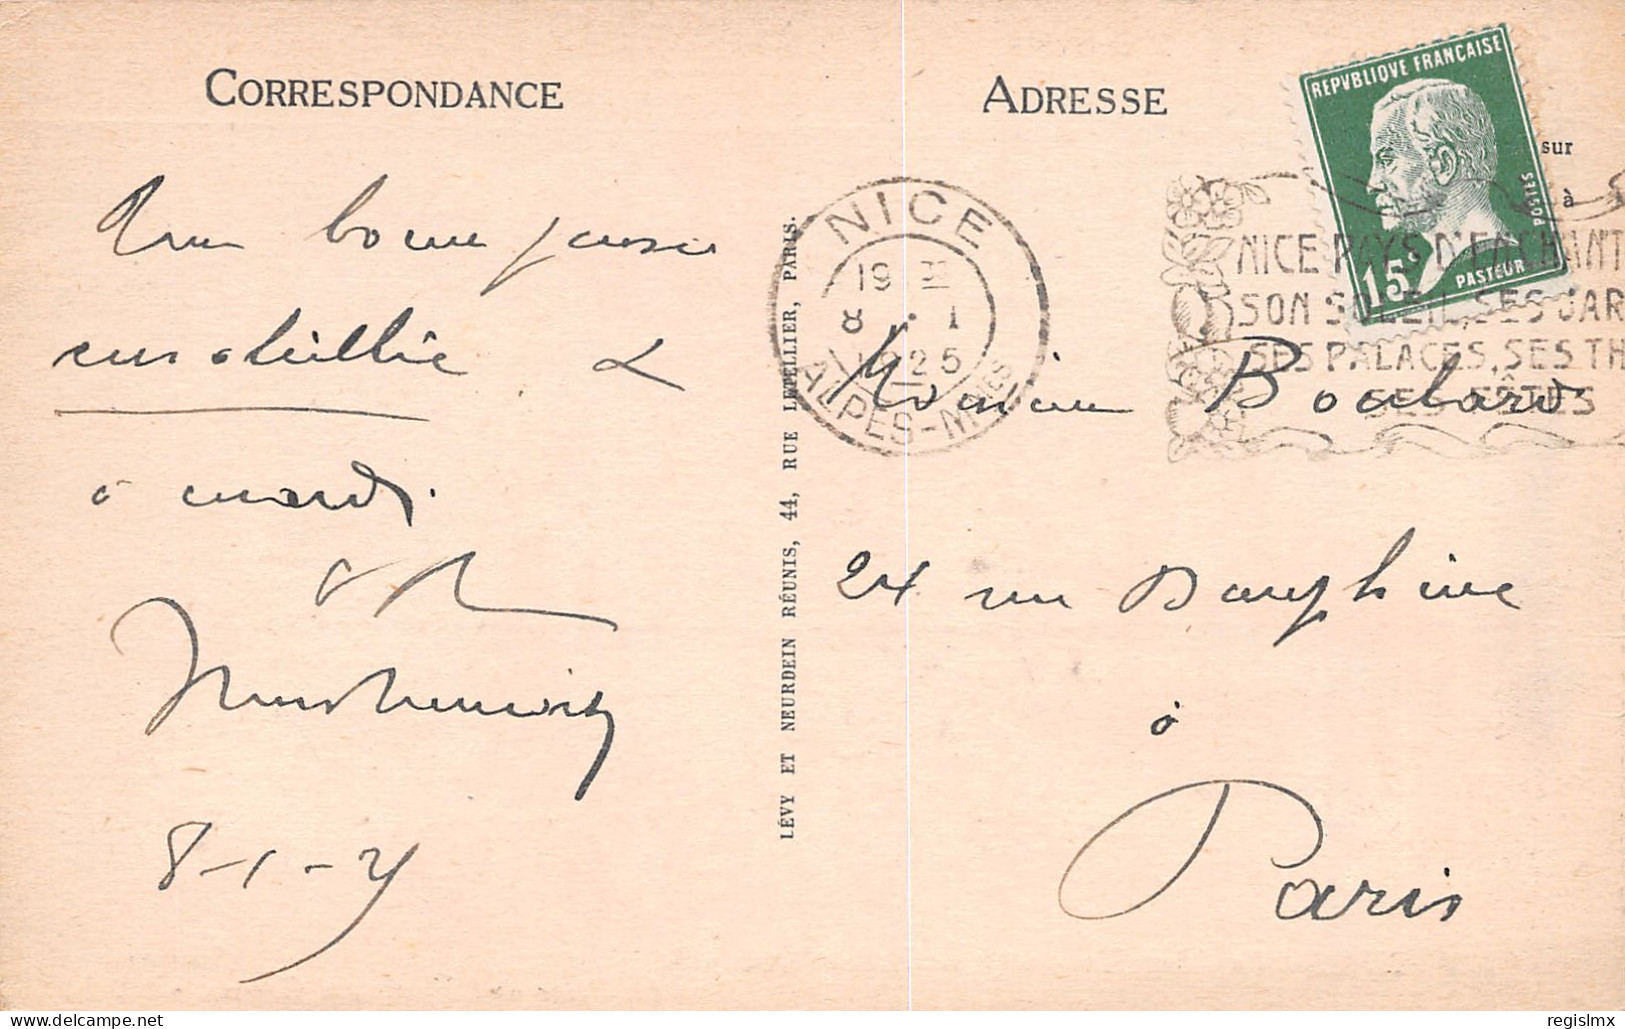 CORRESPONDANCE
Une bonne pensée
ensoleillée &
à mardi
8-1-25
LÉVY ET NEURDEIN RÉUNIS, 44, RUE LETELLIER, PARIS.
ADRESSE
sur
à
REPVBLIQVE FRANÇAISE
POSTES
15c
PASTEUR
NICE
19
8 · 1
1925
ALPES-MMES
NICE PAYS D'ENCHANT
SON SOLEIL, SES JAR
SES PALACES, SES TH
SES FÊTES
Monsieur Boulard
24 rue Dauphine
à
Paris
delcampe.net
regislmx